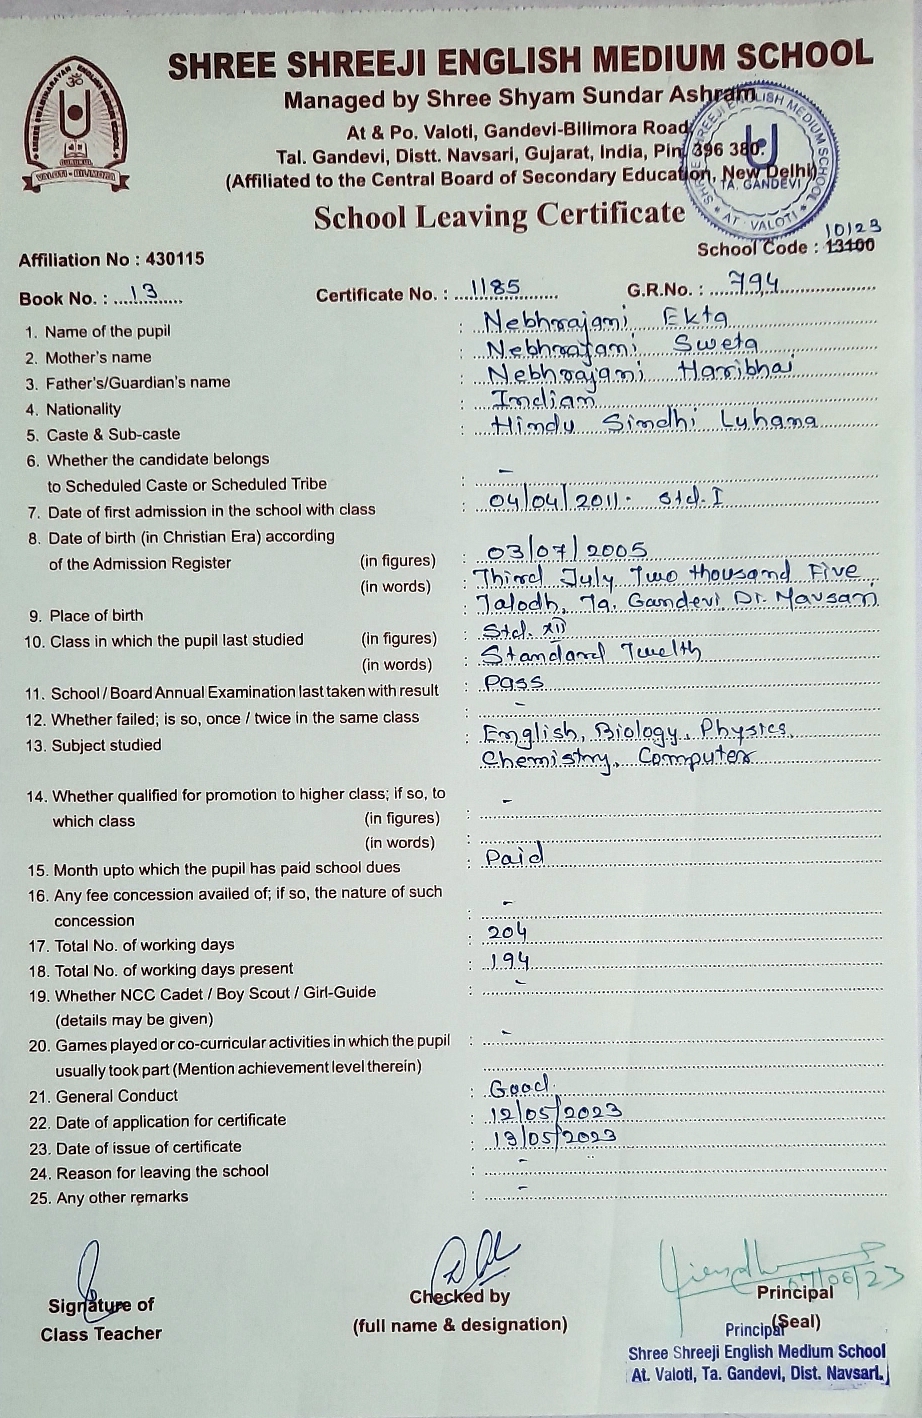 SHREE SWAMINARAYAN ENGLISH MEDIUM SCHOOL
ॐ
GURUKUL
VALOTI - BILIMORA
SHREE SHREEJI ENGLISH MEDIUM SCHOOL
Managed by Shree Shyam Sundar Ashram
At & Po. Valoti, Gandevi-Bilimora Road,
Tal. Gandevi, Distt. Navsari, Gujarat, India, Pin. 396 380.
(Affiliated to the Central Board of Secondary Education, New Delhi)
SHREE SHREEJI ENGLISH MEDIUM SCHOOL
TA. GANDEVI
AT - VALOTI
School Leaving Certificate
10123
Affiliation No : 430115 School Code : 13100
Book No. : 13 Certificate No. : 1185 G.R.No. : 794
1. Name of the pupil : Nebhrajani Ekta
2. Mother's name : Nebhrajani Sweta
3. Father's/Guardian's name : Nebhrajani Haribhai
4. Nationality : Indian
5. Caste & Sub-caste : Hindu Sindhi Luhana
6. Whether the candidate belongs
to Scheduled Caste or Scheduled Tribe : -
7. Date of first admission in the school with class : 04/04/2011. Std. I
8. Date of birth (in Christian Era) according
of the Admission Register (in figures) : 03/07/2005
(in words) : Third July Two thousand Five
9. Place of birth : Talodh, Ta. Gandevi Di. Navsari
10. Class in which the pupil last studied (in figures) : Std. XII
(in words) : Standard Twelth
11. School / Board Annual Examination last taken with result : Pass
12. Whether failed; is so, once / twice in the same class : -
13. Subject studied : English, Biology, Physics,
Chemistry, Computer
14. Whether qualified for promotion to higher class; if so, to
which class (in figures) : -
(in words) :
15. Month upto which the pupil has paid school dues : Paid
16. Any fee concession availed of; if so, the nature of such
concession : -
17. Total No. of working days : 204
18. Total No. of working days present : 194
19. Whether NCC Cadet / Boy Scout / Girl-Guide : -
(details may be given)
20. Games played or co-curricular activities in which the pupil : -
usually took part (Mention achievement level therein)
21. General Conduct : Good
22. Date of application for certificate : 12/05/2023
23. Date of issue of certificate : 13/05/2023
24. Reason for leaving the school : -
25. Any other remarks : -
07/06/23
Signature of Checked by Principal
Class Teacher (full name & designation) (Seal)
Principal
Shree Shreeji English Medium School
At. Valoti, Ta. Gandevi, Dist. Navsari.